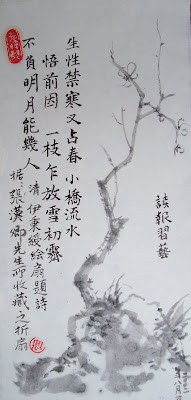 生性禁寒又占春小橋流水
悟前因一枝乍放雪初霽
不負明月能幾人
清伊秉綬絵扇題詩
据:張漢卿先生所收藏之折扇
讀報習藝